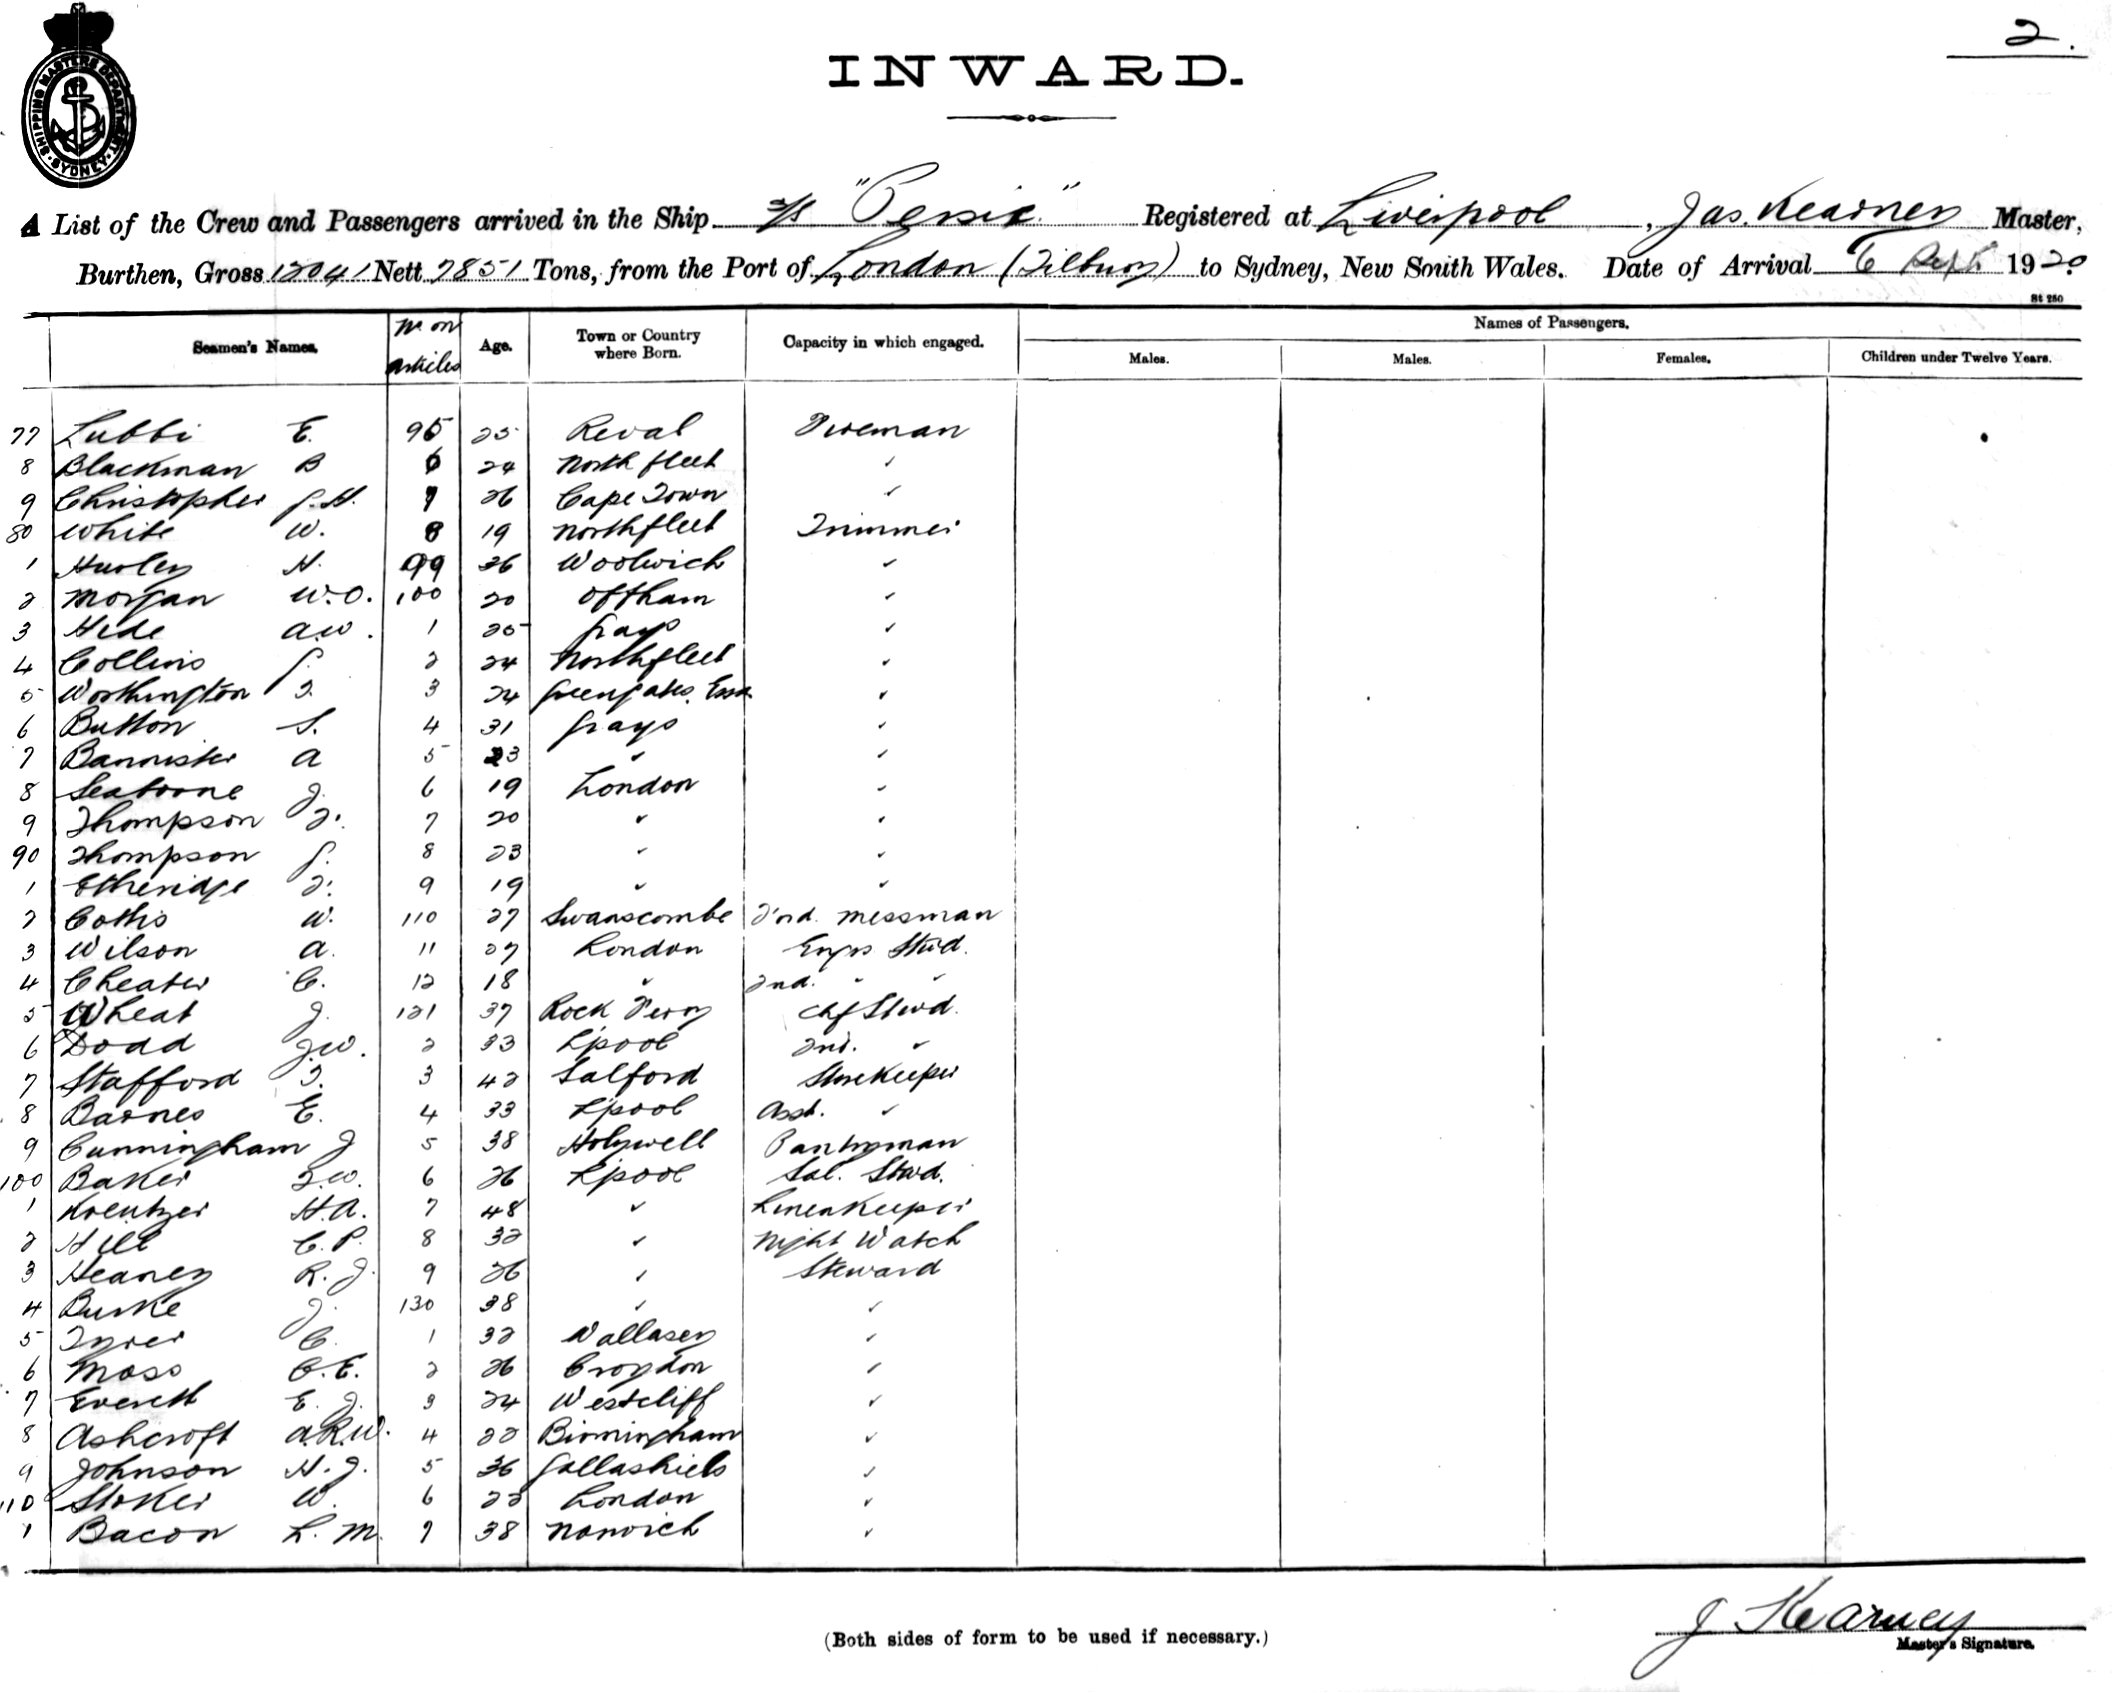 2.
SHIPPING MASTERS DEPARTMENT
SYDNEY
INWARD.
A List of the Crew and Passengers arrived in the Ship s/s "Persic" Registered at Liverpool, Jas. Kearney Master,
Burthen, Gross 12041 Nett 7851 Tons, from the Port of London (Tilbury) to Sydney, New South Wales. Date of Arrival 6 Sept 1920
St 250
Seamen's Names. No. on articles Age. Town or Country where Born. Capacity in which engaged. Names of Passengers.
Males. Males. Females. Children under Twelve Years.
77 Lubbi E. 95 25 Reval Fireman
8 Blackman B 6 24 Northfleet "
9 Christopher J.H. 7 26 Cape Town "
80 White W. 8 19 Northfleet Trimmer
1 Hurley H. 99 26 Woolwich "
2 Morgan W.O. 100 20 Offham "
3 Hide A.W. 1 25 Grays "
4 Collins 2 24 Northfleet "
5 Worthington T. 3 24 Essex "
6 Button S. 4 31 Grays "
7 Bannister A 5 23 " "
8 Seaborne J. 6 19 London "
9 Thompson 7 20 " "
90 Thompson 8 23 " "
1 Etheridge 9 19 " "
2 Cottis W. 110 27 Swanscombe 2nd. Messman
3 Wilson A. 11 27 London Engrs Stwd.
4 Cheater C. 12 18 " 2nd. " "
5 Wheat J. 121 37 Rock Ferry Chf Stwd.
6 Dodd J.W. 2 33 L'pool 2nd. "
7 Stafford T. 3 42 Salford Storekeeper
8 Barnes E. 4 33 L'pool Asst. "
9 Cunningham J 5 38 Holywell Pantryman
100 Baker F.W. 6 26 L'pool Sal. Stwd.
1 Kreutzer H.A. 7 48 " Linenkeeper
2 Hill C.P. 8 32 " Night Watch
3 Heaney R.J. 9 26 " Steward
4 Burke J. 130 38 " "
5 Tyrer C. 1 32 Wallasey "
6 Moss C.E. 2 26 Croydon "
7 Everett E.J. 3 24 Westcliff "
8 Ashcroft A.R.W. 4 22 Birmingham "
9 Johnson H.J. 5 36 Gallashiels "
110 Stoker W. 6 22 London "
1 Bacon L.M. 7 38 Norwich "
(Both sides of form to be used if necessary.)
J Kearney
Master's Signature.